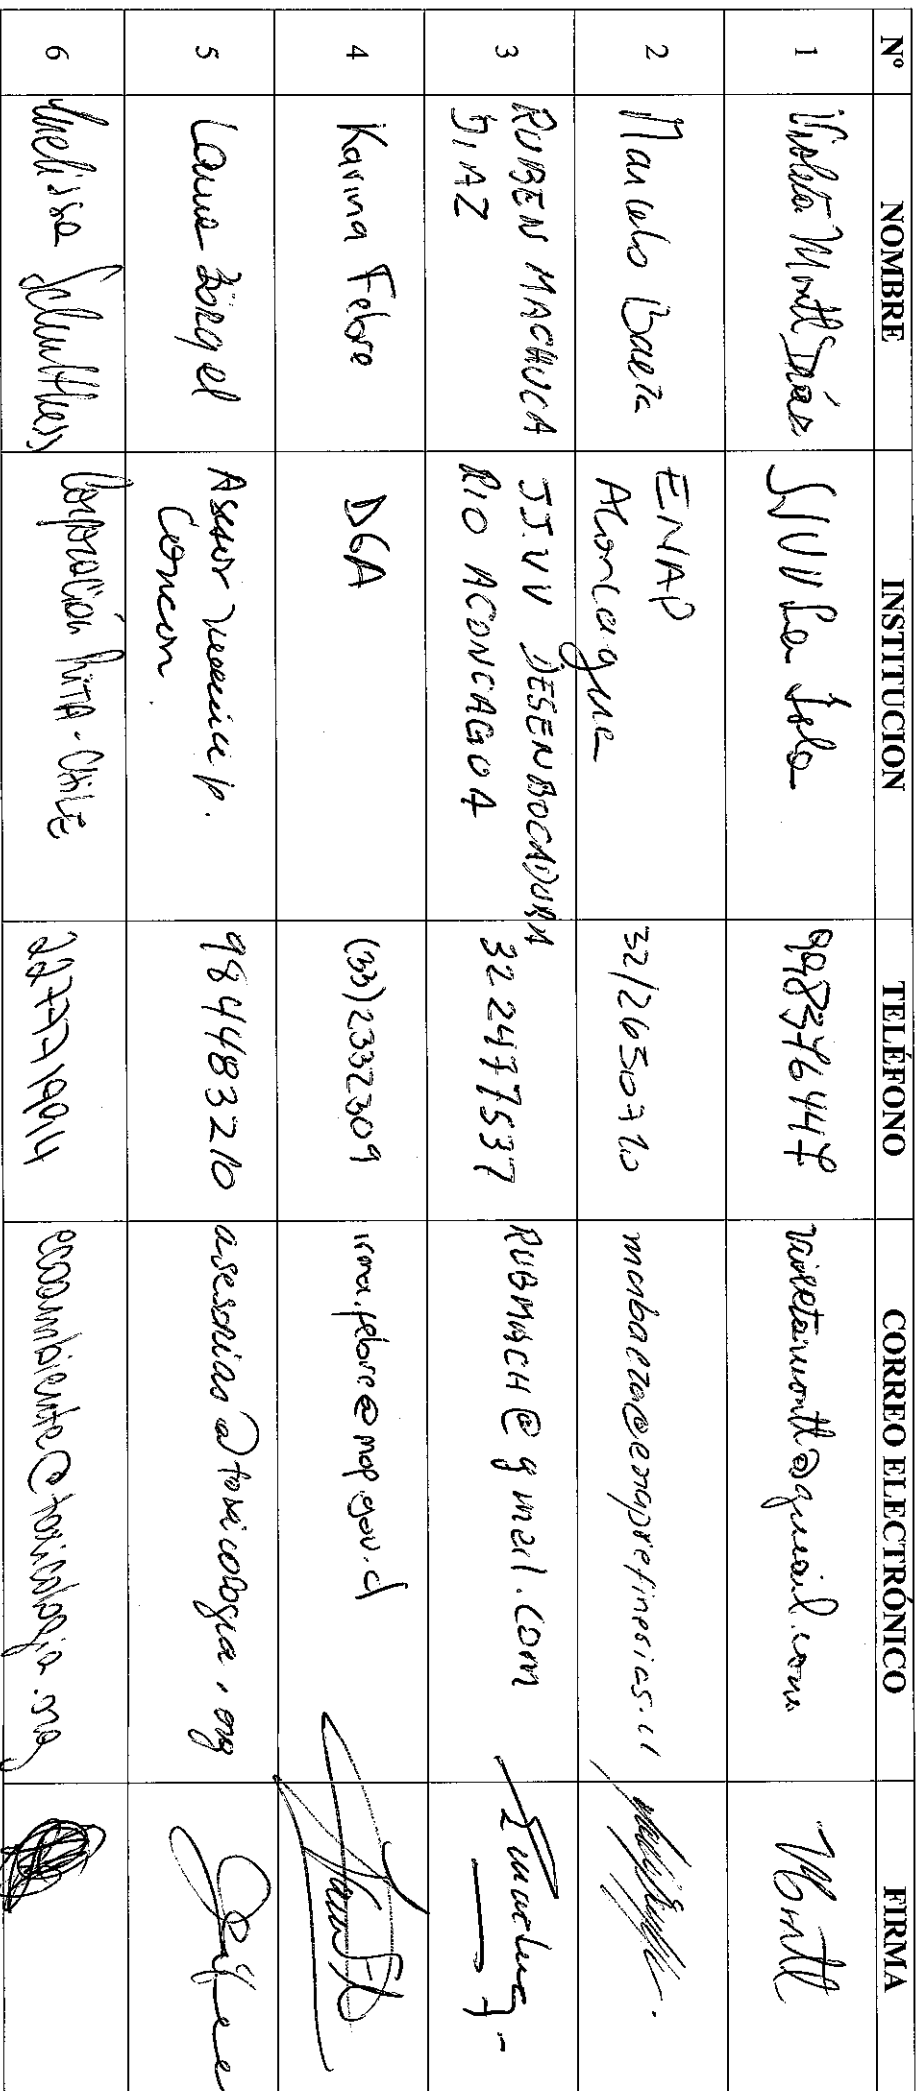 Nº NOMBRE INSTITUCION TELÉFONO CORREO ELECTRÓNICO FIRMA
1 Violeta Montt JJVV La Isla 998376447 violetamontt@gmail.com Montt
2 Marcelo Baeza ENAP 32/2650710 marbaeza@enaprefinerias.cl
Aconcagua
3 RUBEN MACHUCA JJVV DESENBOCADURA 32 2477537 RUBMACH@gmail.com
DIAZ RIO ACONCAGUA
4 Karina Febre DGA (33)2332309 irma.febre@mop.gov.cl
5 Laura Börgel Asesor municip. 984483210 asesorias@toxicologia.org
Concon
6 Melissa Schulthess Corporación RITA-CHILE 227771994 ecoambiente@toxicologia.org